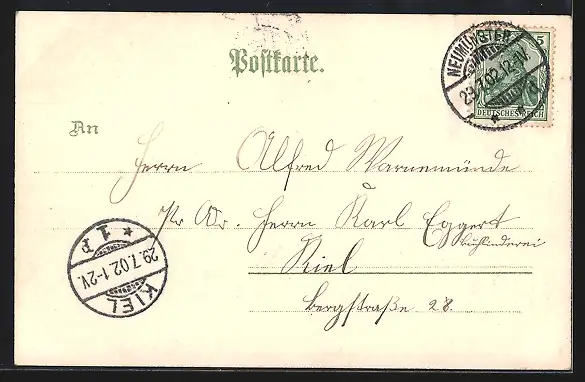 Postkarte.
NEUMÜNSTER
29.7.02.12-1V
5
DEUTSCHES REICH
An
Herrn Alfred Warnemünde
Pr. Adr. Herrn Karl Eggert
Kiel
Bergstraße 28.
KIEL
29.7.02.1-2V.
* 1 P